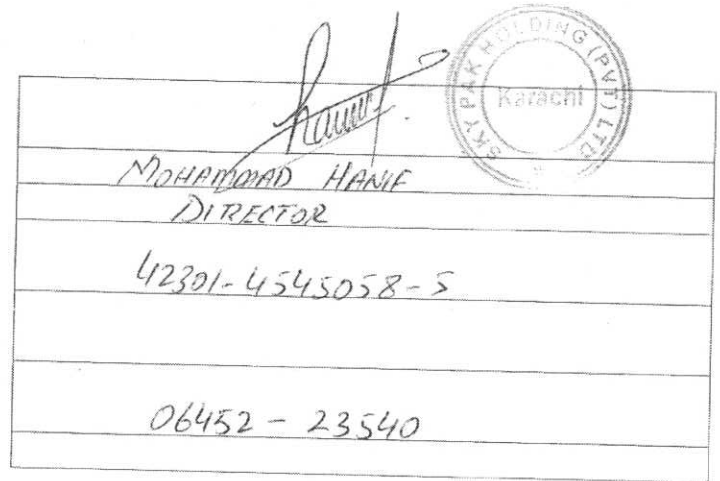 SKY PAK HOLDING (PVT) LTD
Karachi
Hanif
MOHAMMAD HANIF
DIRECTOR
42301-4545058-5
06452 - 23540